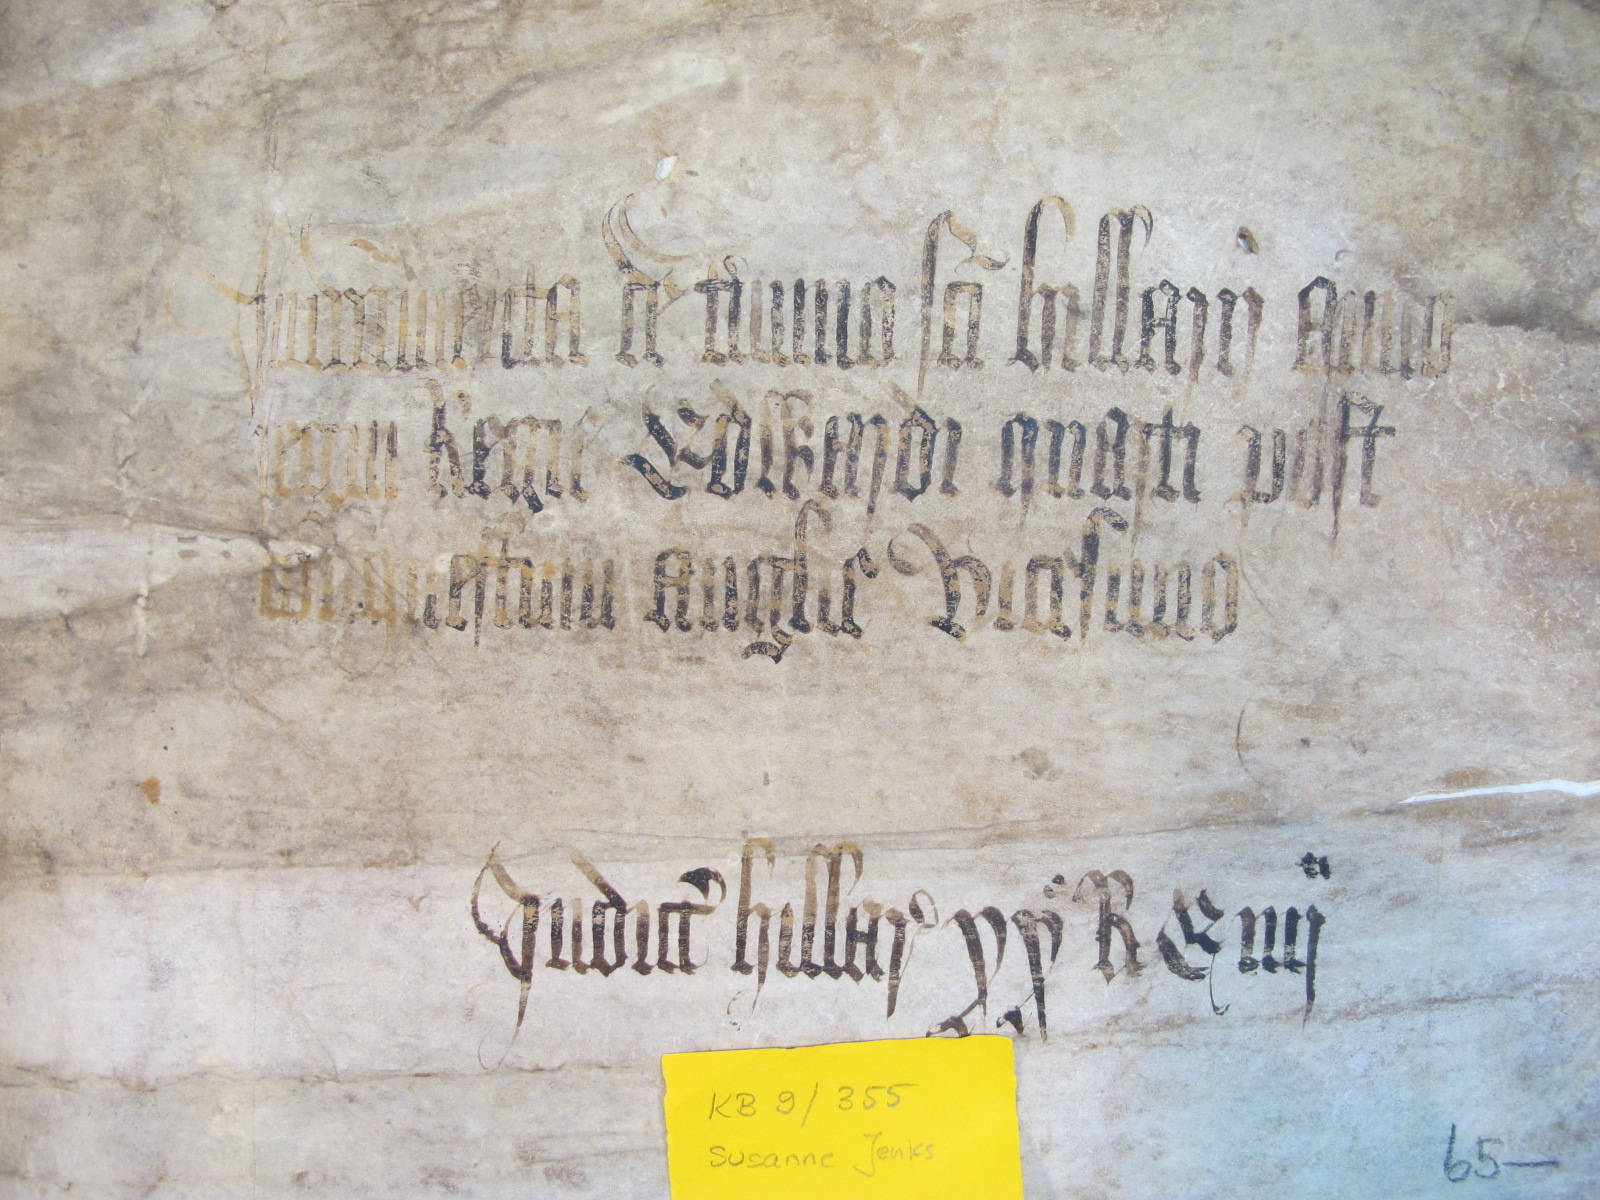 Indictamenta de t'mino sci hillarij anno
regni Regis Edwardi quarti post
conquestum Anglie Vicesimo
Indict' hillar' xx R E iiij
KB 9/355
Susanne Jenks
65—